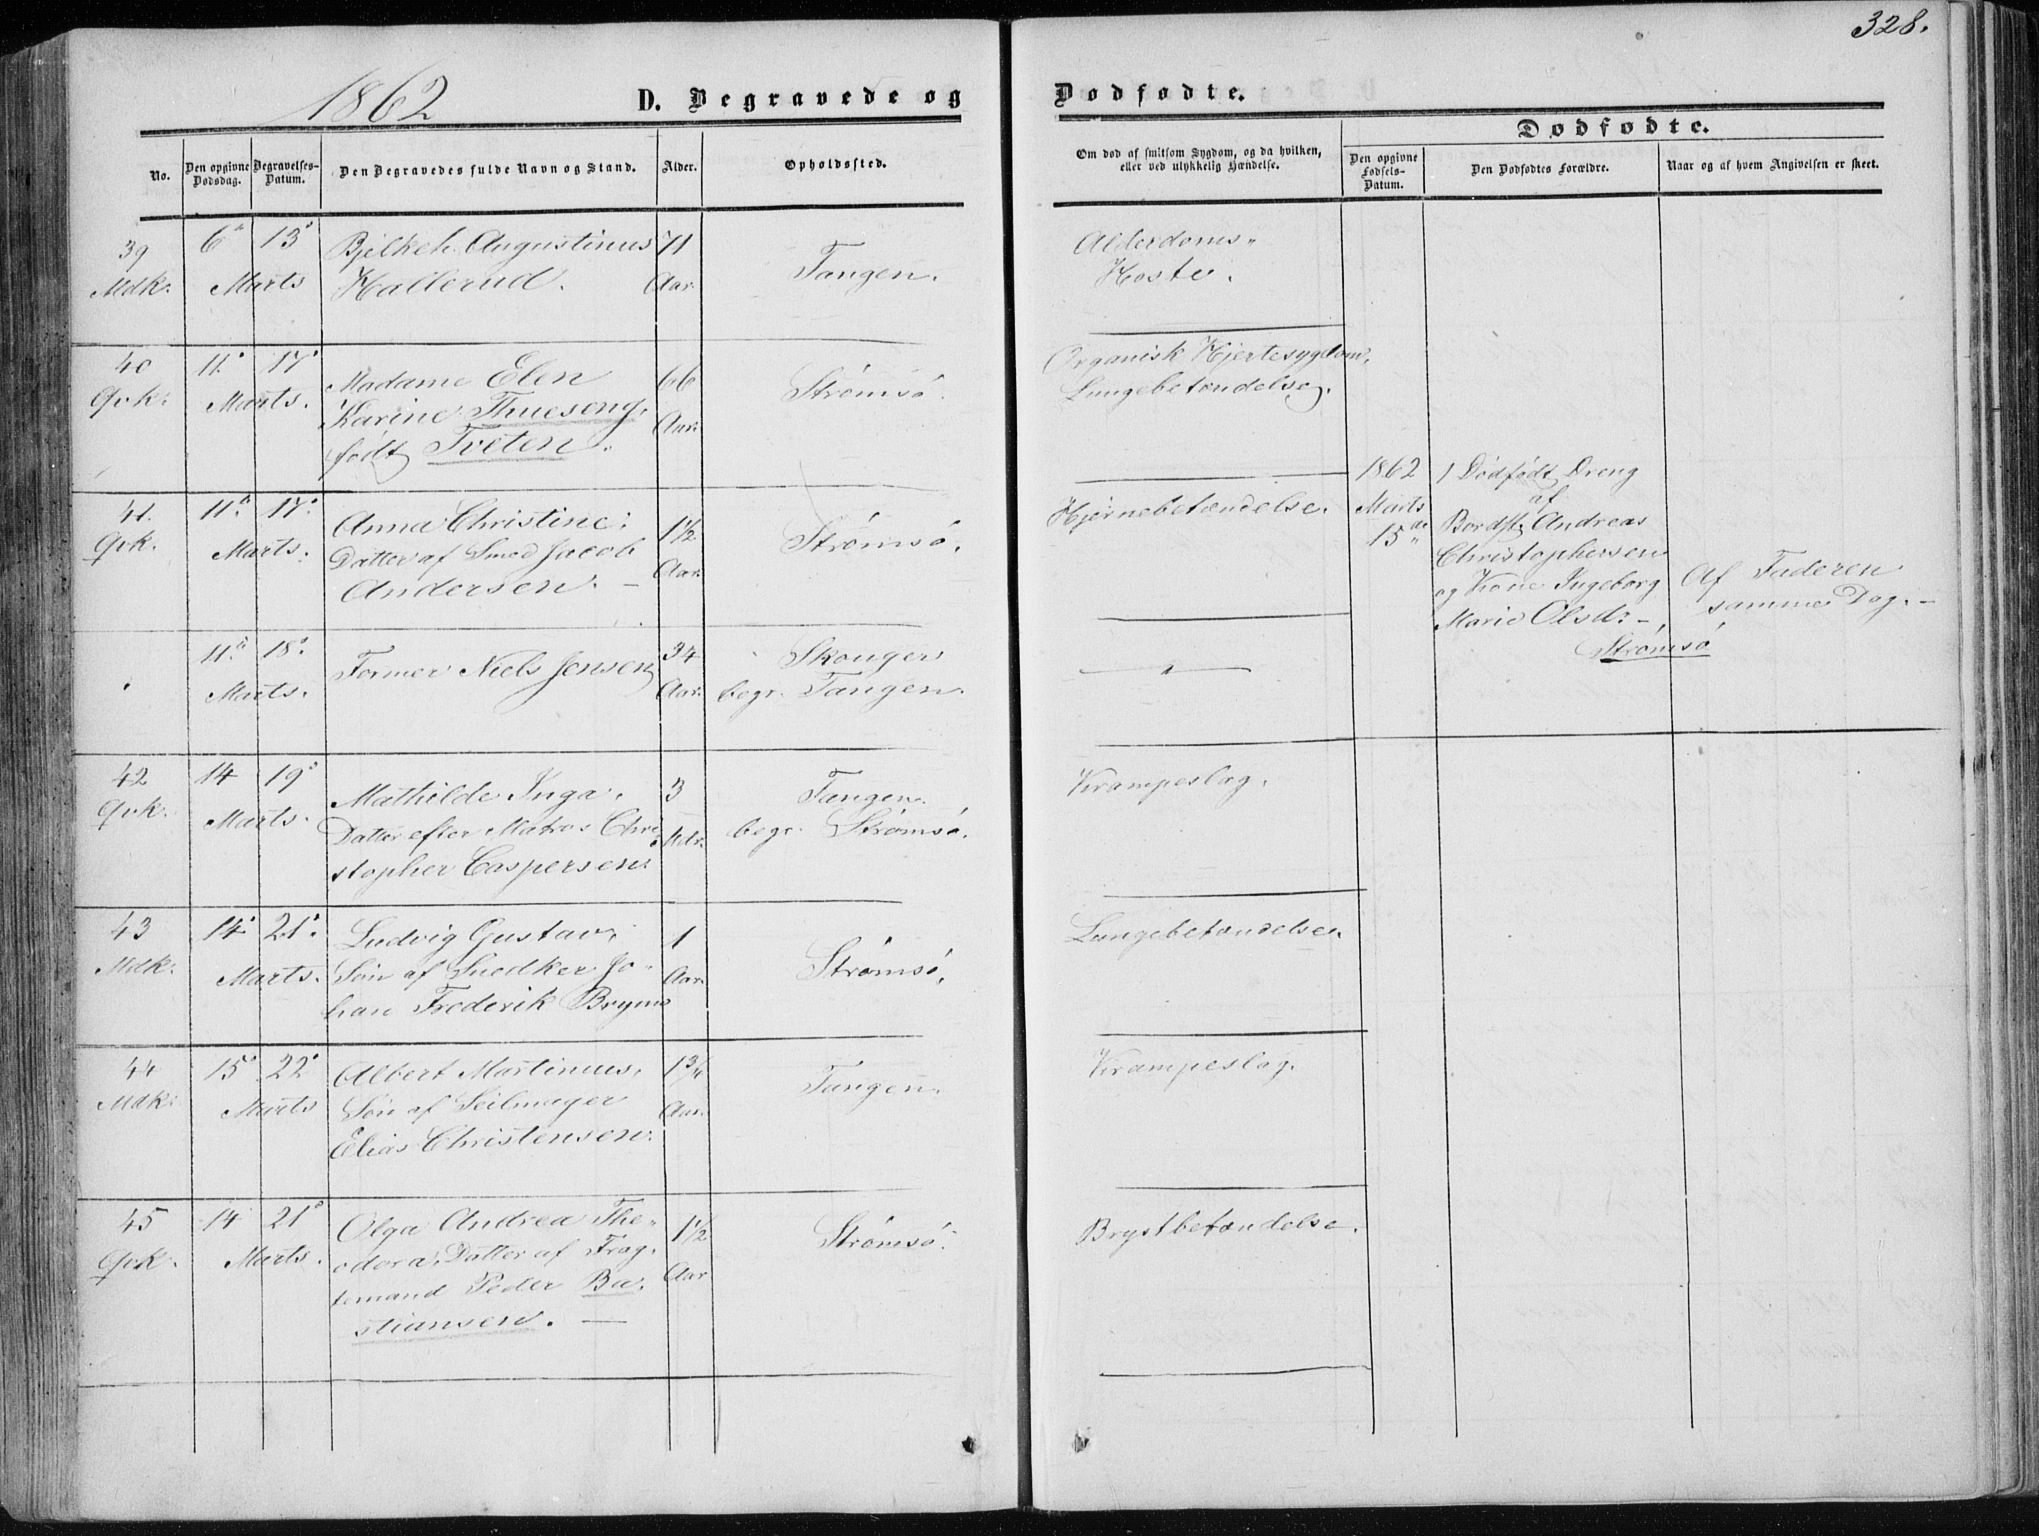 328.
1862
D. Begravede og
Dødfødte.
No.
Den opgivne Dødsdag.
Begravelses-Datum.
Den Begravedes fulde Navn og Stand.
Alder.
Opholdssted.
Om død af smitsom Sygdom, og da hvilken, eller ved ulykkelig Hændelse.
Dødfødte.
Den opgivne Fødsels-Datum.
Den Dødfødtes Forældre.
Naar og af hvem Angivelsen er skeet.
39 6 13 Augustinus 71 Tangen. Alderdoms-
Mdk. Marts Hallerud. Aar. Hoste.
40 11 17 Madame Elen 66 Strømsø. Organisk Hjertesygdom,
Qvk. Marts. Karine Thueseng, Aar. Lungebetændelse.
født Treten.
41. 11 17 Anna Christine; 1½ Strømsø. Hjernebetændelse.
Qvk. Marts. Datter af Smed Jacob Aar.
Andersen. —
11 18 Former Niels Jensen 34 Skouger — " —
Marts. Aar. begr. Tangen.
42 14 19 Mathilde Inga, 3 Tangen. Krampeslag.
Qvk. Marts. Datter efter Matros Chri begr. Strømsø.
stopher Caspersen.
43 14 21 Ludvig Gustav, 1 Strømsø, Lungebetændelse.
Mdk. Marts. Søn af Snedker Jo- Aar.
han Frederik Bryn
44 15 22 Albert Martinius, 1¾ Tangen. Krampeslag.
Mdk. Marts Søn af Seilmager Aar.
Elias Christensen.
45 14 21 Olga Andrea The- 1½ Strømsø. Brystbetændelse.
Qvk. Marts. odora, Datter af Frag- Aar
temand Peder Ba-
stiansen. —
1862 1 Dødfødt Dreng
Marts af
15de Bordst. Andreas
Christophersen
og Kone Ingeborg
Marie Olsd. —,
Strømsø
Af Faderen
samme Dag. —